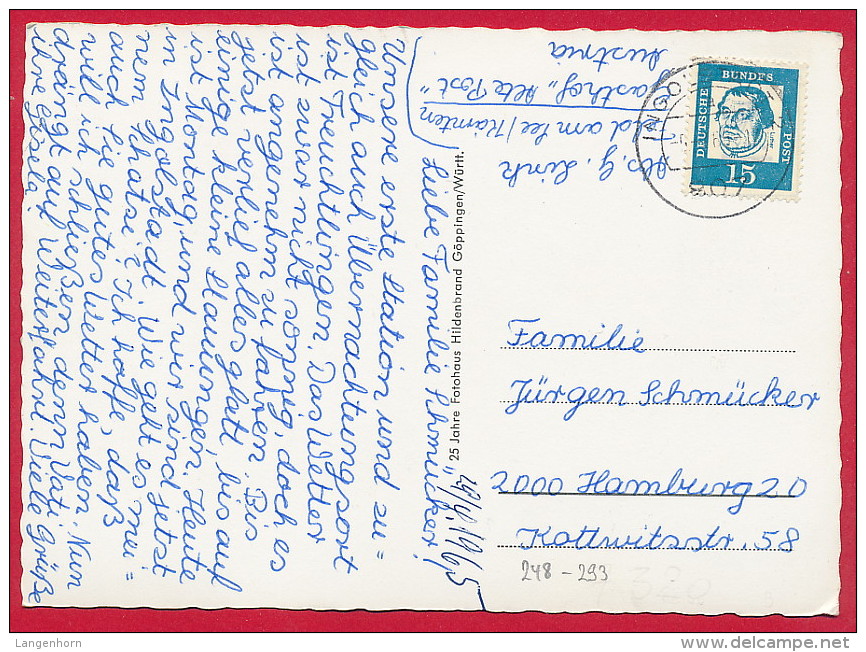 Abs. G. Link
Feld am See/Kärnten
Gasthof „Alte Post"
Austria
29/4.1965
Liebe Familie Schmücker!
Unsere erste Station und zu=
gleich auch Übernachtungsort
ist Treuchtlingen. Das Wetter
ist zwar nicht sonnig, doch es
ist angenehm zu fahren. Bis
jetzt verlief alles glatt, bis auf
einige kleine Stauungen. Heute
ist Montag, und wir sind jetzt
in Ingolstadt. Wie geht es mei=
nem Schatzi? Ich hoffe, daß
auch Sie gutes Wetter haben. Nun
will ich schließen, denn Vati
drängt auf Weiterfahrt. Viele Grüße
ihre Gisela
25 Jahre Fotohaus Hildenbrand Göppingen/Württ.
DEUTSCHE BUNDESPOST
15
INGO
807
Familie
Jürgen Schmücker
2000 Hamburg 20
Kottwitzstr. 58
248-293
Langenhorn
delcampe.net